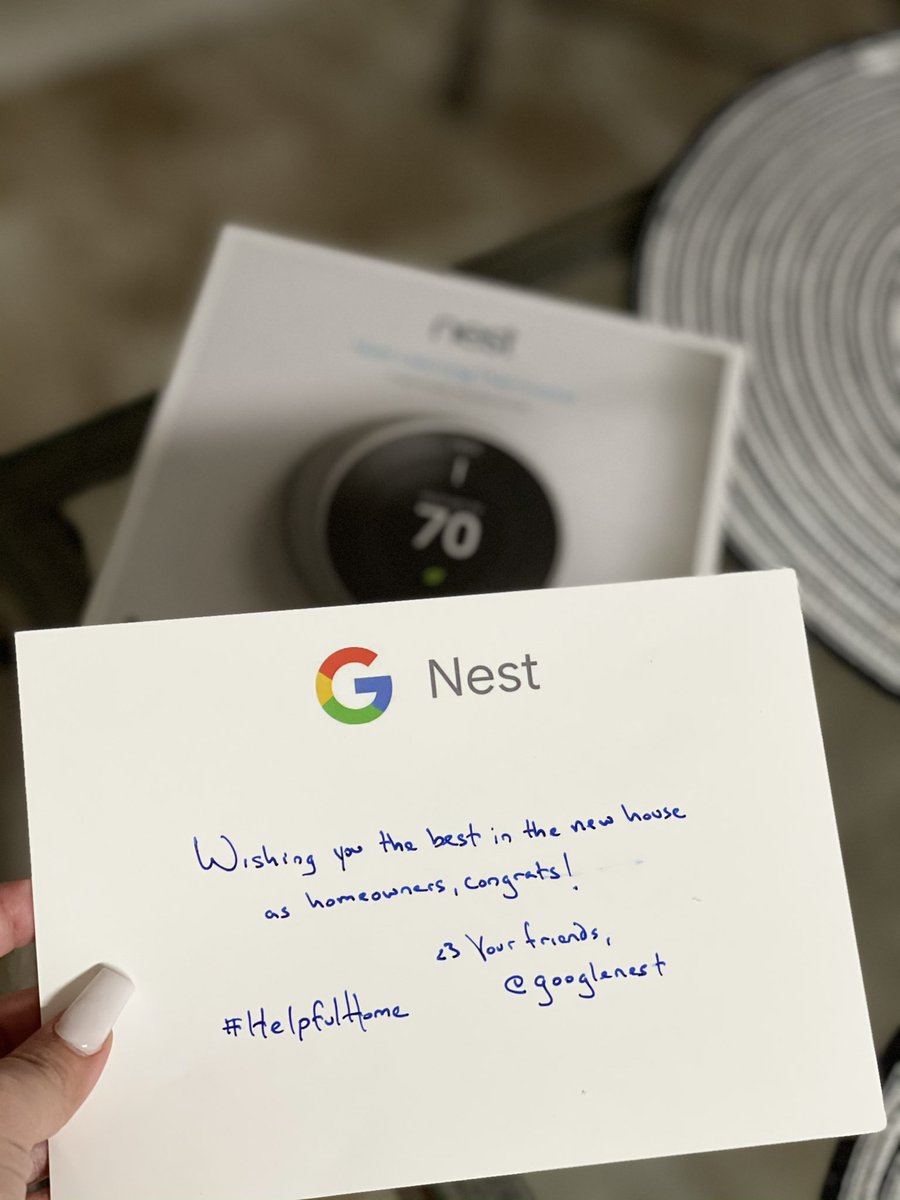 nest
70
G Nest
Wishing you the best in the new house
as homeowners, congrats!
<3 Your friends,
@googlenest
#HelpfulHome